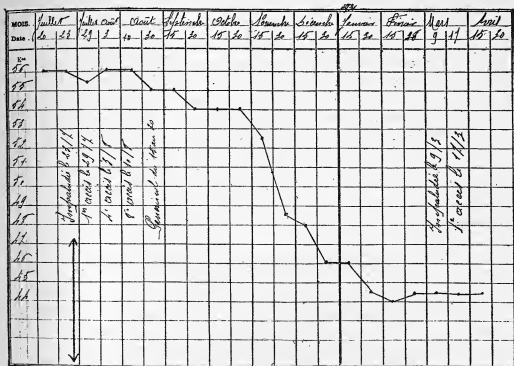 1931
MOIS. Juillet Juillet Août Août Septembre Octobre Novembre Décembre Janvier Février Mars Avril
Date. 20 23 29 3 10 20 15 20 15 20 15 20 15 20 15 20 15 25 9 17 15 20
K^os
56
55
54
53
52
51
50
49
48
47
46
45
44
Impaludé le 23/7
1^er accès le 29/7
4^e accès le 3/8
8^e accès le 10/8
Impaludée le 9/3
1^er accès le 17/3